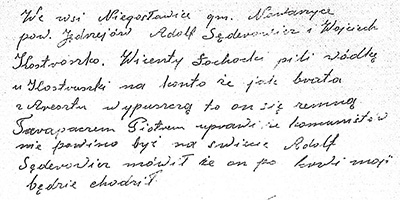 We wsi Niegosławice gm. Nawarzyce
pow. Jędrzejów Adolf Sęderowicz i Wojciech
Kostrusko. Wicenty Sochacki pili wódkę
u Kostruski na konto że jak brata
z Aresztu wypuszczą to on się
Piotrem komunistów
nie powino być na świecie Adolf
Sęderowicz mówił że on po krwi moji
będzie chodził